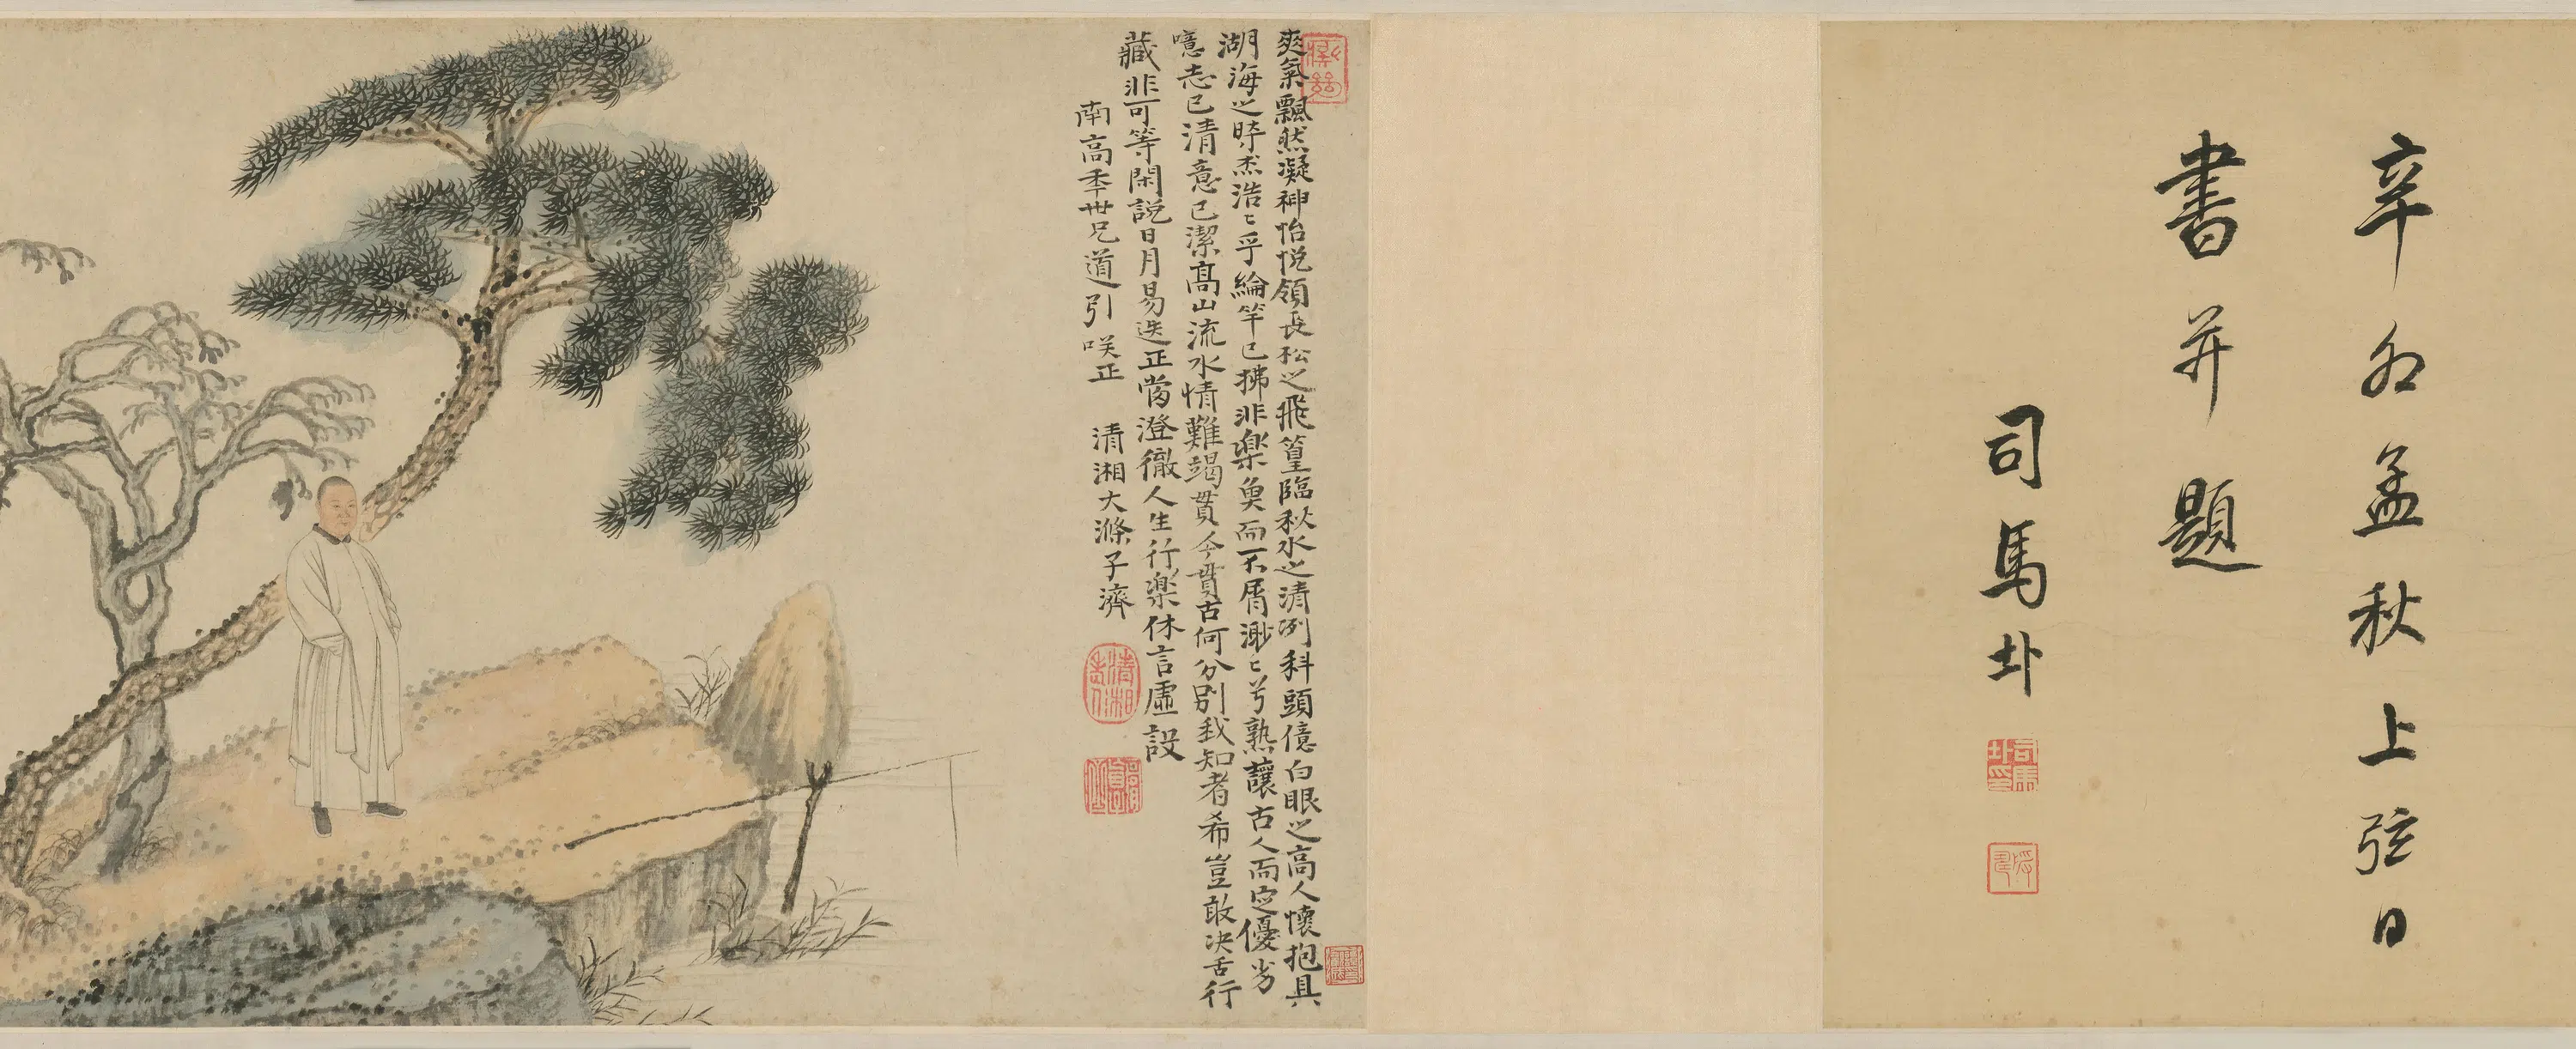 辛卯孟秋上弦日
書并題
司馬圤
爽氣飄然凝神怡悅領長松之飛篁臨秋水之清冽科頭億白眼之高人懷抱具
湖海之時杰浩〻乎綸竿已拂非樂魚而不屑渺〻兮熟讓古人而定優劣
噫志已清意已潔髙山流水情難竭貫今貫古何分別我知者希豈敢決舌行
藏非可等閑說日月易迭正當澄徹人生行樂休言虛設
南高季世兄道引 咲正 清湘大滌子濟
清湘
司馬圤印